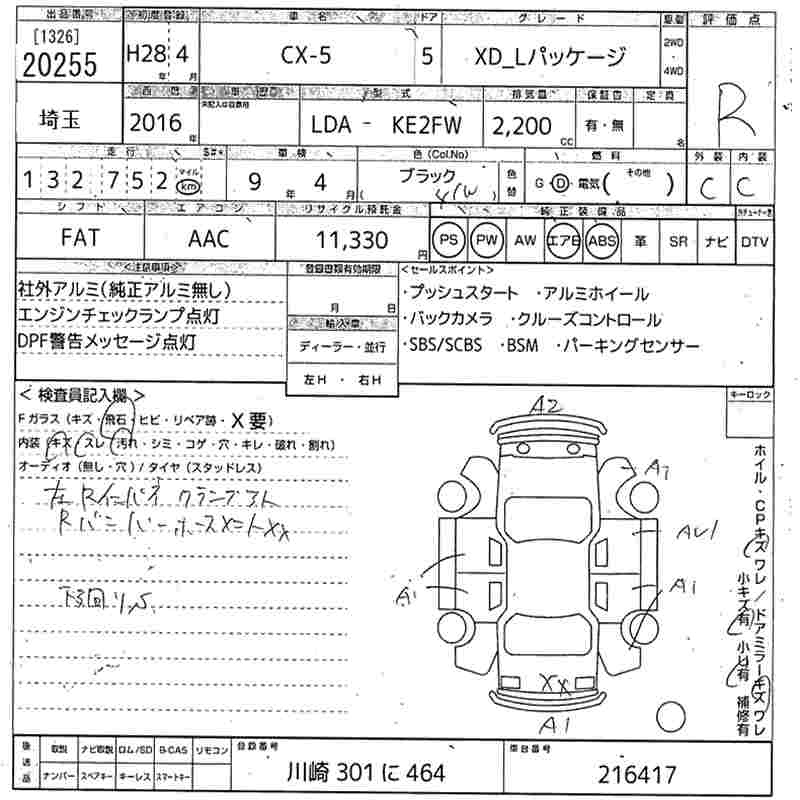 出品番号 初度登録 車名 ドア グレード 駆動 評価点
[1326]
20255 H28年 4月 CX-5 5 XD_Lパッケージ 2WD・4WD R
西暦 車歴 型式 排気量 保証書 定員
未記入は自家用
埼玉 2016年 LDA - KE2FW 2,200 CC 有・無 名
走行 S#* 車検 色(Col.No) 燃料 外装 内装
132,752 マイル km 9年 4月 ブラック 色替 G・D・電気 (その他) C C
シフト エアコン リサイクル預託金 純正装備品
FAT AAC 11,330円 PS PW AW エアB ABS 革 SR ナビ DTV
<注意事項> 登録書類有効期限 <セールスポイント>
社外アルミ(純正アルミ無し) 月 日 ・プッシュスタート ・アルミホイール
エンジンチェックランプ点灯 輸入車 ・バックカメラ ・クルーズコントロール
DPF警告メッセージ点灯 ディーラー・並行 ・SBS/SCBS ・BSM ・パーキングセンサー
左H・右H
<検査員記入欄> キーロック
Fガラス(キズ・飛石・ヒビ・リペア跡・X要)
内装(キズ・スレ・汚れ・シミ・コゲ・穴・キレ・破れ・割れ)
オーディオ(無し・穴)/タイヤ(スタッドレス)
A2
A1
A1
A1
XX
A1
ホイル・CPキズワレ/ドアミラーキズワレ
小キズ有 小凹有 補修有
後送品 取説 ナビ取説 ロム/SD B-CAS リモコン 登録番号 車台番号
ナンバー スペアキー キーレス スマートキー 川崎 301 に 464 216417